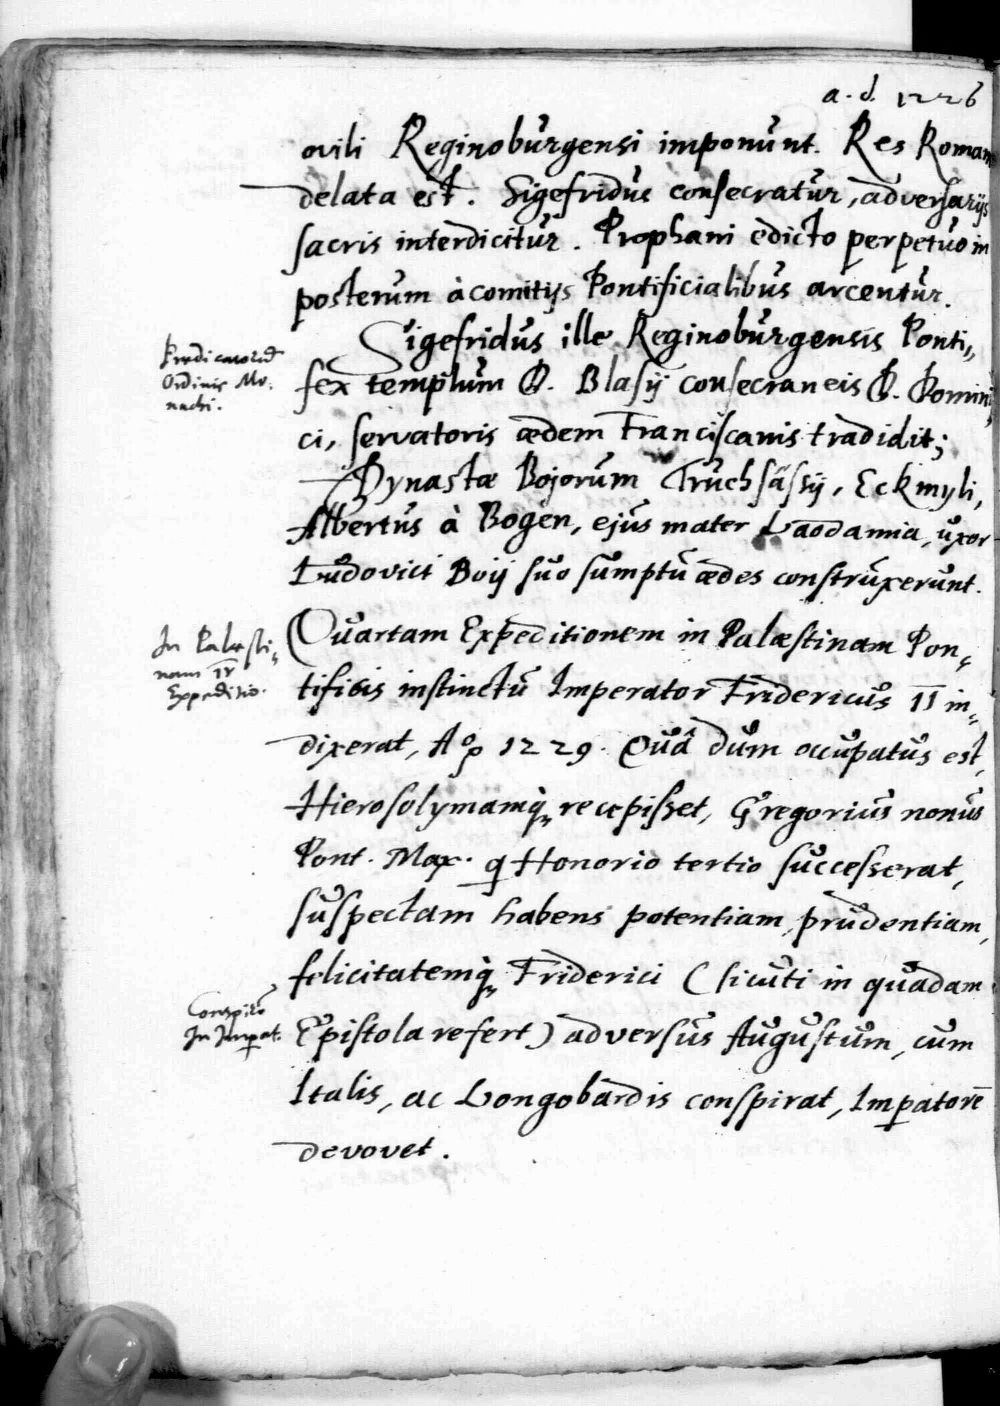 a. d. 1226
ovili Reginoburgensi imponunt. Res Romam
delata est. Sigefridus consecratur, adversarijs
sacris interdicitur. Prophani edicto perpetuo in
posterum à comitijs Pontificialibus arcentur.
Sigefridus ille Reginoburgensis Ponti„
Ordinis Mo:
nachi.
fex templum D. Blasij consecraneis D. Domini
ci, servatoris ædem Franciscanis tradidit;
Dynastæ Bojorum Truchsässij, Eckmyli,
Albertus à Bogen, ejus mater Laodamia, uxor
Ludovici Boij suo sumptu ædes construxerunt.
In Palæsti„
nam IV
Expeditio.
Quartam Expeditionem in Palæstinam Pon„
tificis instinctu Imperator Fridericus II in„
dixerat, Aº 1229. Quâ dum occupatus est,
Hierosolymamq; recepisset, Gregorius nonus
Pont. Max. q Honorio tertio successerat,
suspectam habens potentiam, prudentiam,
felicitatemq; Friderici (sicuti in quadam
In Imp̱at.
Epistola refert) adversus Augustum, cum
Italis, ac Longobardis conspirat, Imp̱atorē
devovet.